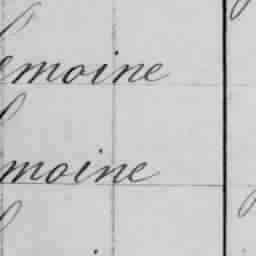 emoine
moine